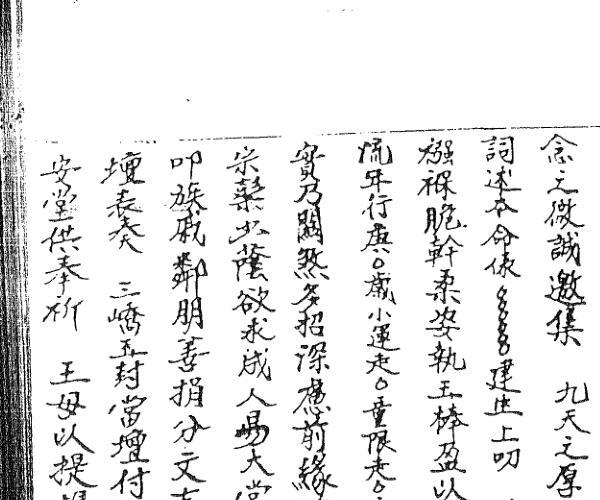 念之微誠邀集 九天之原
詞述本命係〻〻〻〻建生上叨
襁褓脆幹柔姿執玉棒盈以
流年行庚〇歲小運走〇童限走〇
實乃關煞多招深慮前緣
宗蘖少蔭欲求成人昜大
叩族戚鄰朋善捐分文
壇表奏 三嶠五封當壇付
安堂供奉祈 王母以提